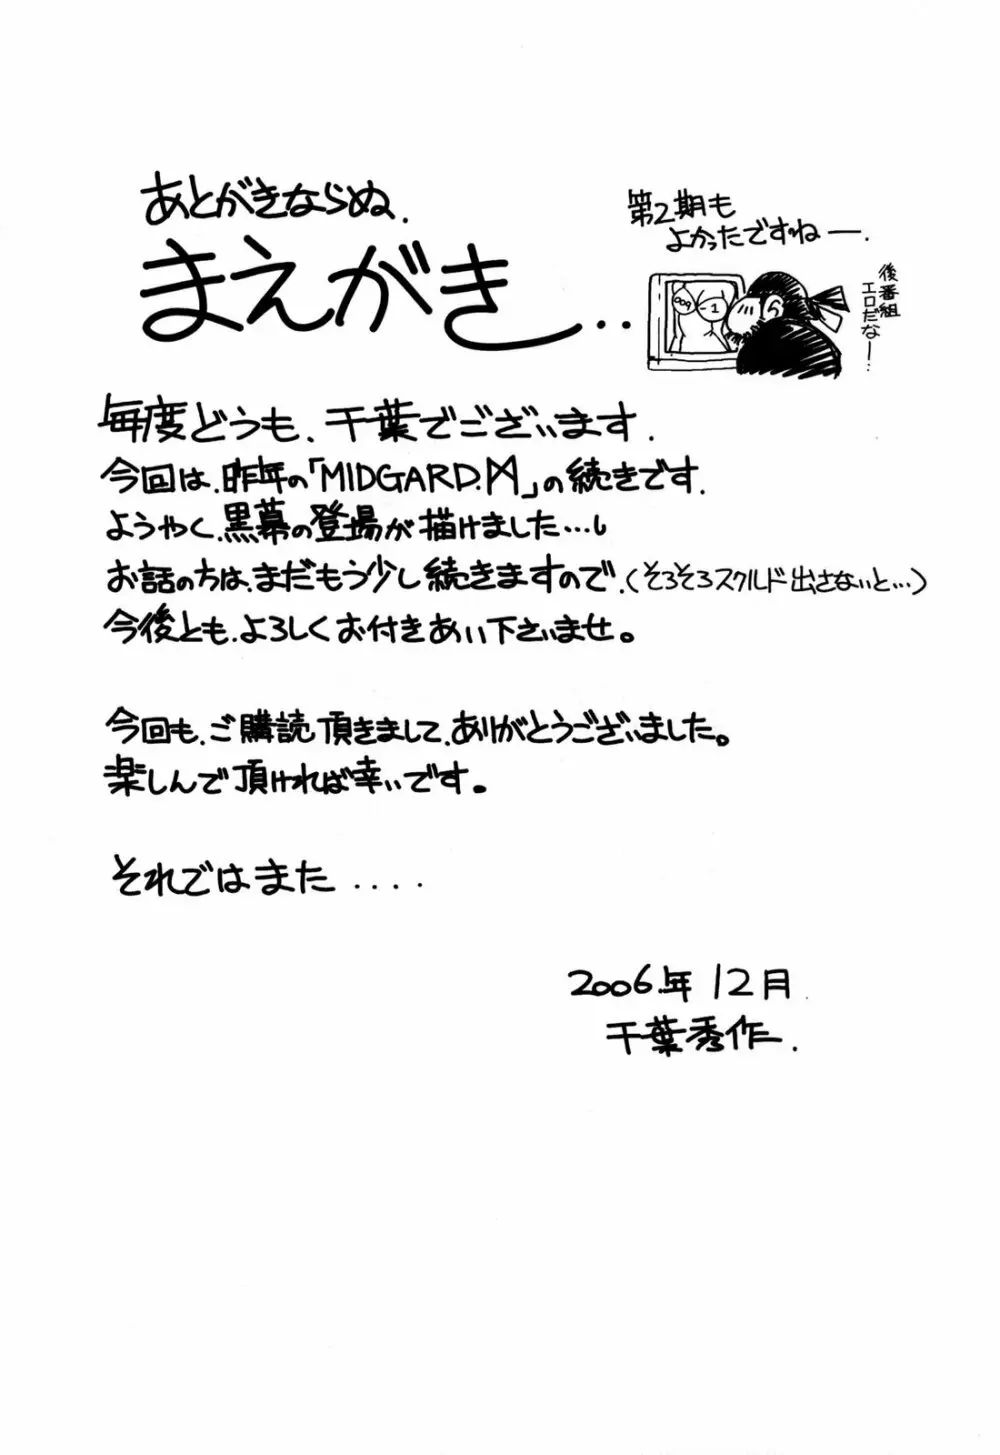 あとがきならぬ、
まえがき‥
第2期も
よかったですねー.
後番組
エロだなー…
009
-1
毎度どうも、千葉でございます.
今回は、昨年の「MIDGARD.ᛞ」の続きです.
ようやく、黒幕の登場が描けました…し
お話のちは、まだもう少し続きますので、(そろそろスクルド出さないと…)
今後とも、よろしくお付きあい下さいませ。
今回も、ご購読頂きまして、ありがとうございました。
楽しんで頂ければ幸いです。
それではまた‥‥
2006年12月
千葉秀作.